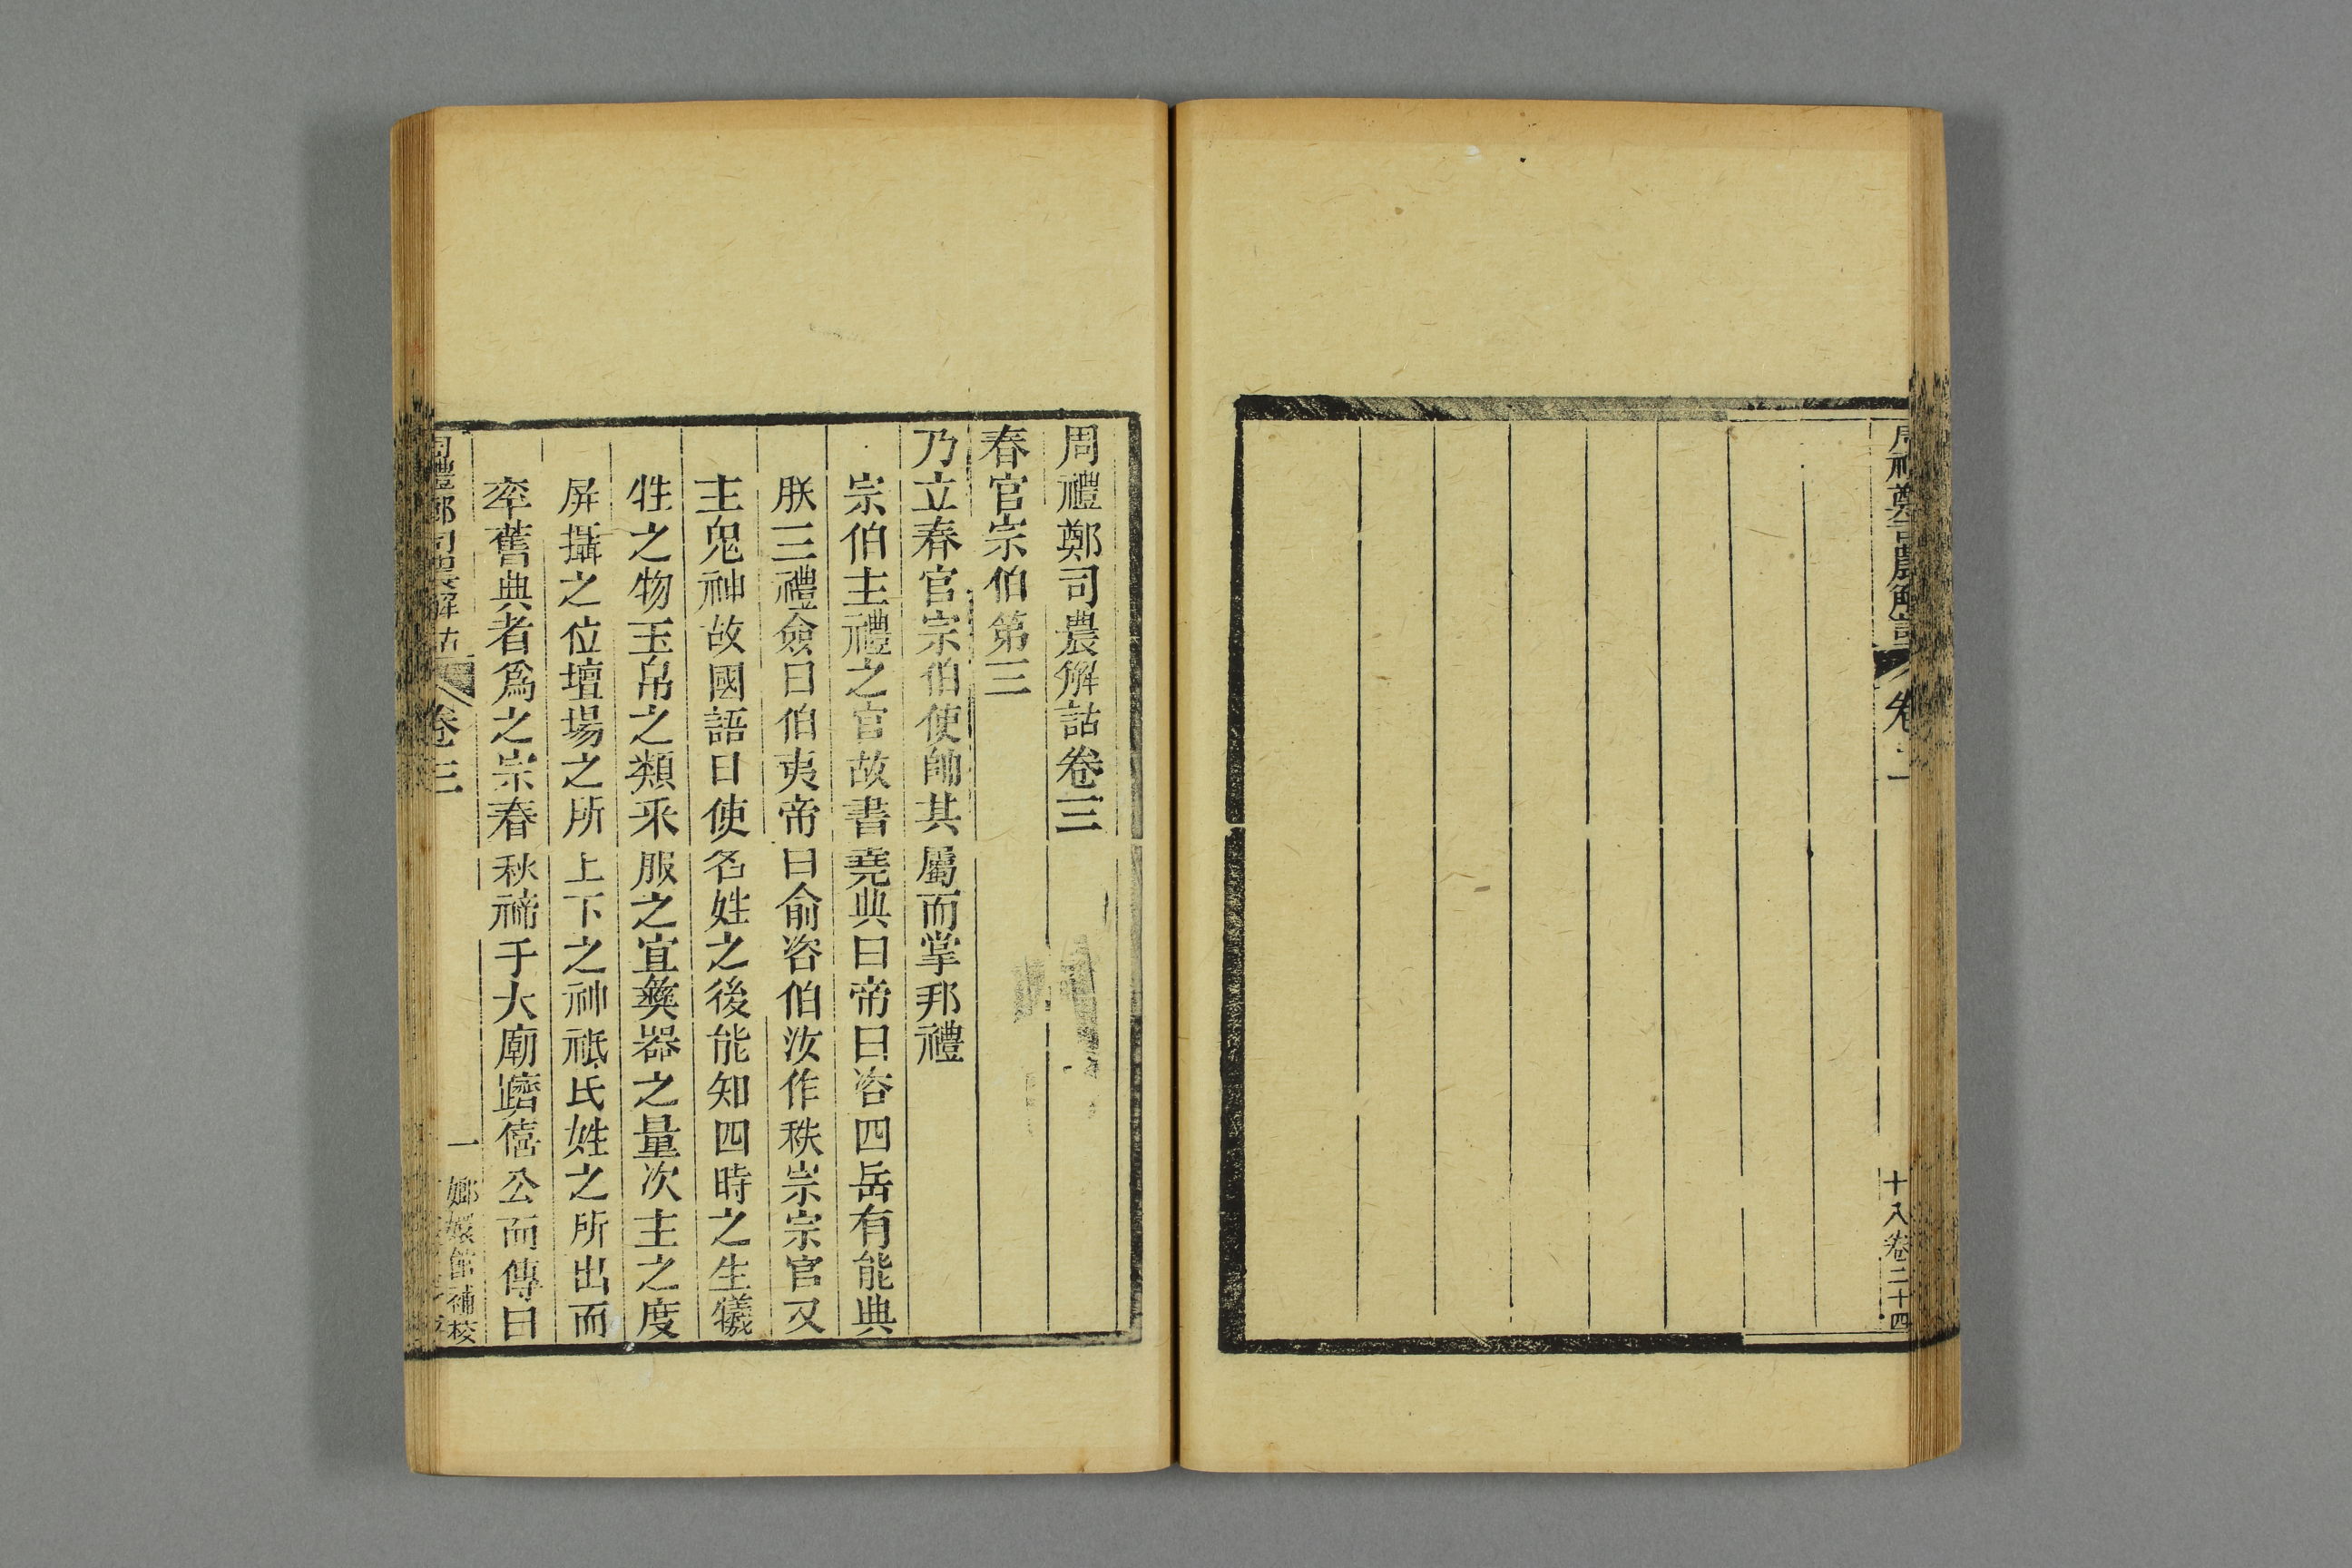 十八卷二十四
周禮鄭司農解詁卷三
春官宗伯第三
乃立春官宗伯使帥其屬而掌邦禮
宗伯主禮之官故書堯典曰帝曰咨四岳有能典
朕三禮僉曰伯夷帝曰俞咨伯汝作秩宗宗官又
主鬼神故國語曰使名姓之後能知四時之生犧
牲之物玉帛之類采服之宜彝器之量次主之度
屏攝之位壇場之所上下之神祇氏姓之所出而
率舊典者爲之宗春秋禘于大廟躋僖公而傳曰
周禮鄭司農解詁 卷三 一 嫏嬛館補校